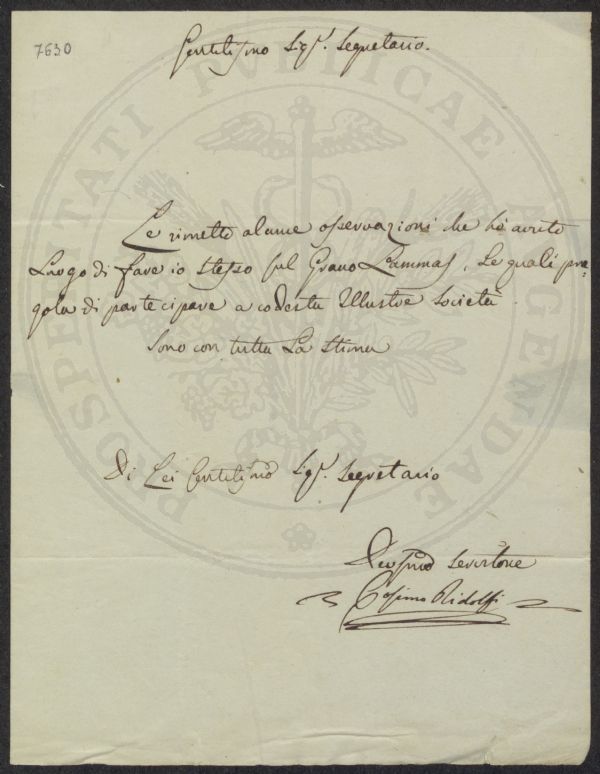 7630
Gentilissmo Sigr. Segretario.
Le rimetto alcune osservazioni che hò avuto
Luogo di fare io stesso sul Grano Lammas, Le quali pre-
gola di partecipare a codesta Illustre società
Sono con tutta La Stima
Di Lei Gentilissmo Sigr. Segretario
servitore
Cosimo Ridolfi
PROSPERITATI PVBLICAE AVGENDAE